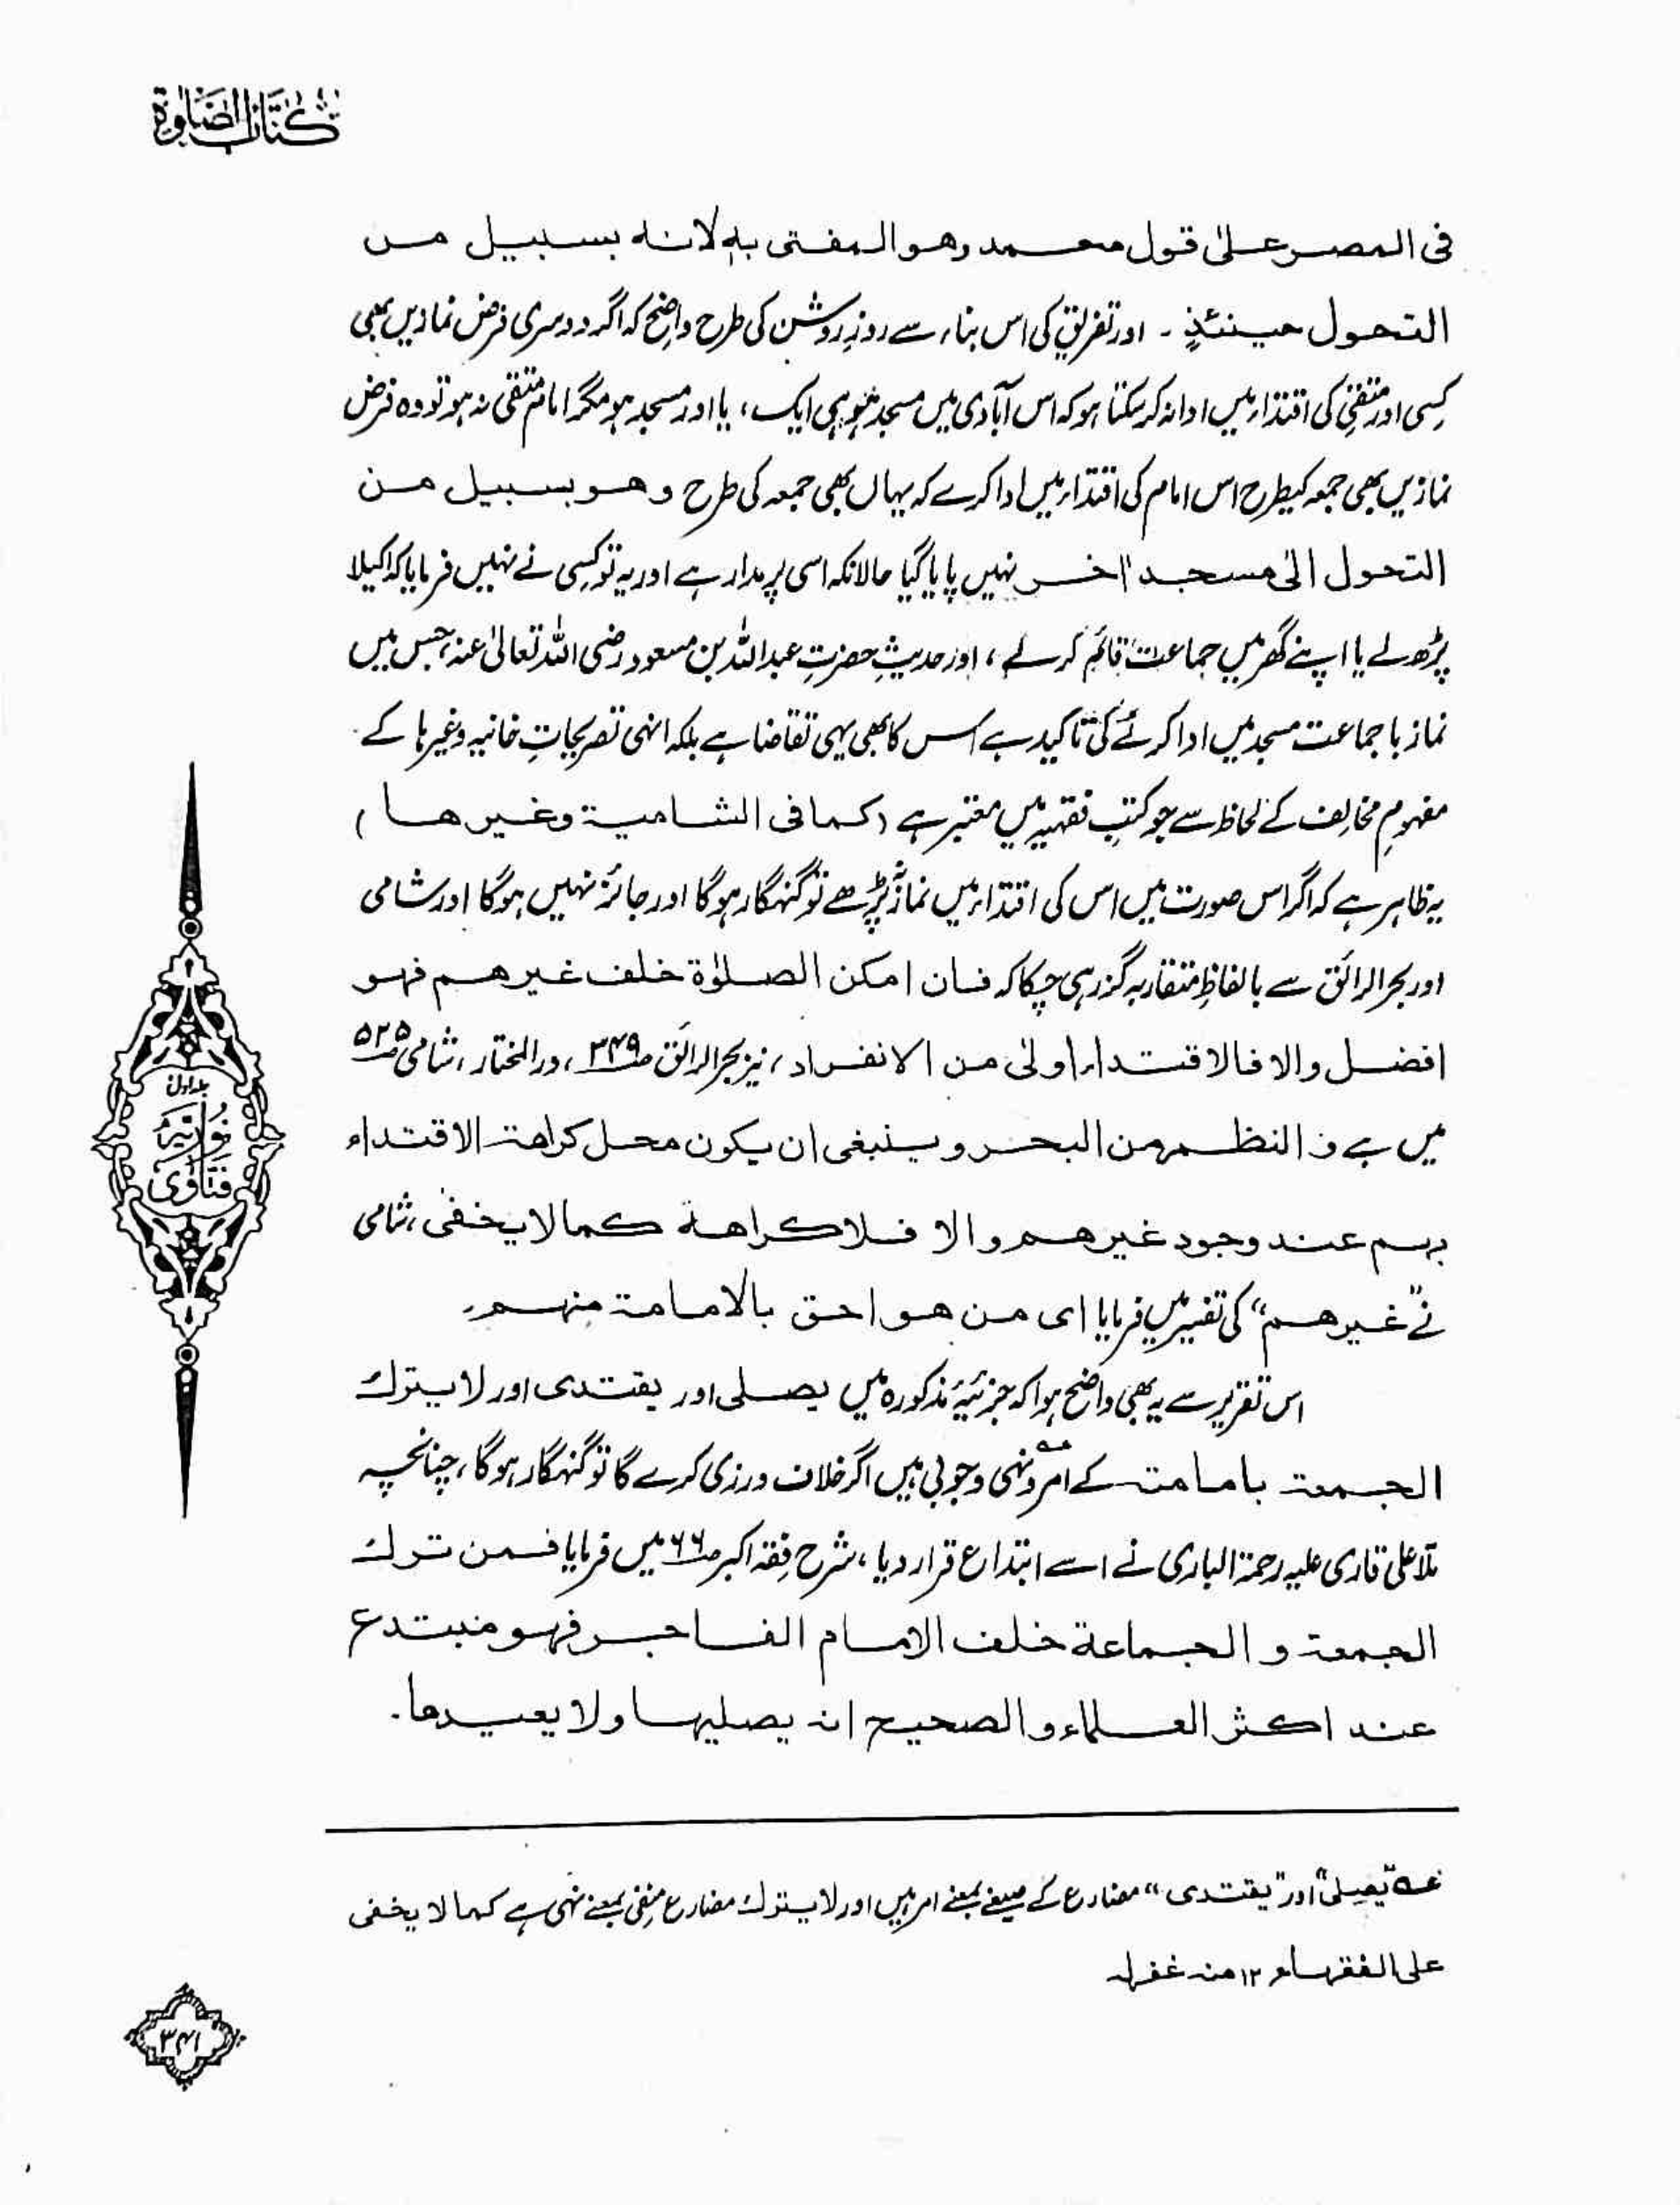 کتاب الصلوٰۃ
فی المصر علیٰ قول محمد وھو المفتی بہ لانہ بسبیل من
التحول حینئذٍ ۔ اور تفریق کی اس بناء سے روزِ روشن کی طرح واضح کہ اگر دوسری فرض نمازیں بھی
کسی اور متقی کی اقتداء میں ادا نہ کر سکتا ہو کہ اس آبادی میں مسجد ہو ہی ایک، یا اور مسجد ہو مگر امام متقی نہ ہو تو وہ فرض
نمازیں بھی جمعہ کیطرح اس امام کی اقتداء میں ادا کرے کہ یہاں بھی جمعہ کی طرح وھو بسبیل من
التحول الیٰ مسجد اٰخر نہیں پایا گیا حالانکہ اسی پر مدار ہے اور یہ تو کسی نے نہیں فرمایا کہ اکیلا
پڑھ لے یا اپنے گھر میں جماعت قائم کر لے، اور حدیثِ حضرتِ عبداللہ بن مسعود رضی اللہ تعالیٰ عنہ، جس میں
نماز با جماعت مسجد میں ادا کرنے کی تاکید ہے اس کا بھی یہی تقاضا ہے بلکہ انہی تصریحاتِ خانیہ وغیرہا کے
مفہومِ مخالف کے لحاظ سے جو کتبِ فقہیہ میں معتبر ہے (کما فی الشامیۃ وغیرھا)
یہ ظاہر ہے کہ اگر اس صورت میں اس کی اقتداء میں نماز نہ پڑھے تو گنہگار ہوگا اور جائز نہیں ہوگا اور شامی
اور بحر الرائق سے بالفاظِ متقاربہ گزر ہی چکا کہ فان امکن الصلوٰۃ خلف غیرھم فہو
افضل والا فالاقتداء اولیٰ من الانفراد، نیز بحر الرائق ص۳۴۹، در المختار، شامی ص۵۲۵
میں ہے و النظم من البحر و ینبغی ان یکون محل کراھۃ الاقتداء
بہم عند وجود غیرھم والا فلا کراھۃ کما لا یخفیٰ، شامی
نے "غیرھم" کی تفسیر میں فرمایا ای من ھو احق بالامامۃ منہم۔
اس تقریر سے یہ بھی واضح ہوا کہ جزئیۂ مذکورہ میں یصلی اور یقتدی اور لا یترک
الجمعۃ بامامتہ کے امر و نہی وجوبی ہیں عہ اگر خلاف ورزی کرے گا تو گنہگار ہوگا، چنانچہ
ملا علی قاری علیہ رحمۃ الباری نے اسے ابتداع قرار دیا، شرح فقہ اکبر ص۶۶ میں فرمایا فمن ترک
الجمعۃ و الجماعۃ خلف الامام الفاجر فہو مبتدع
عند اکثر العلماء و الصحیح انہ یصلیہا ولا یعیدھا۔
عہ "یصلی" اور "یقتدی" مضارع کے صیغے بمعنے امر ہیں اور لا یترک مضارع منفی بمعنے نہی ہے کما لا یخفی
علی الفقہاء ۱۲ منہ غفرلہ
جلد اول
نوریہ
فتاویٰ
۳۴۱